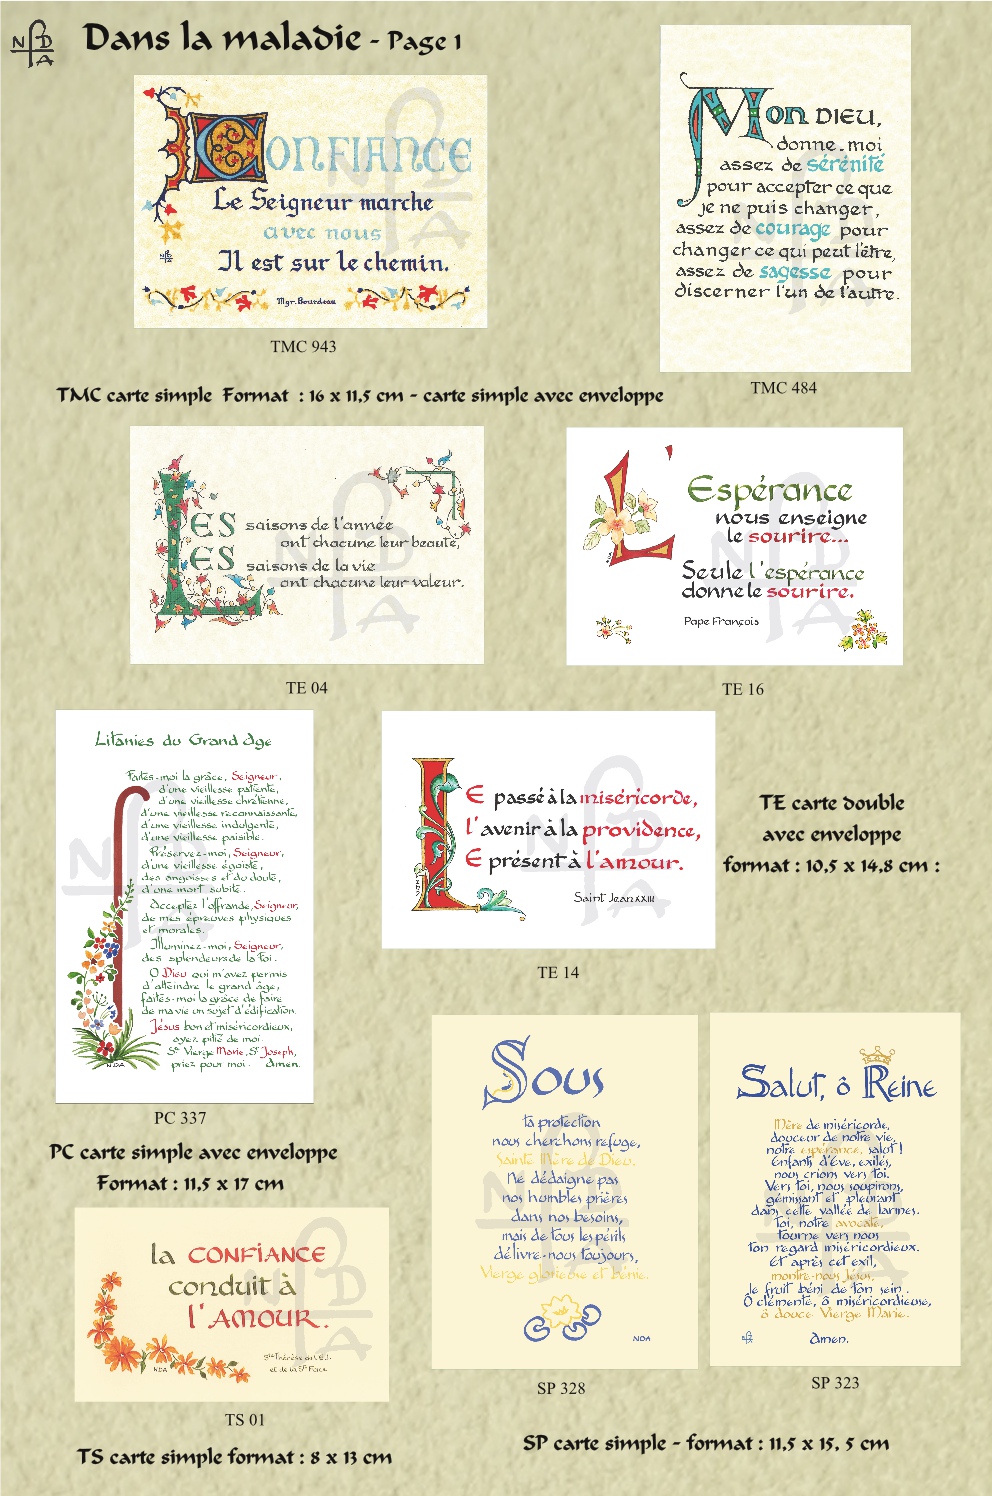 NDA
Dans la maladie - Page 1
CONFIANCE
Le Seigneur marche
avec nous
Il est sur le chemin.
Mgr. Bourdeau
TMC 943
Mon DIEU,
donne-moi
assez de sérénité
pour accepter ce que
je ne puis changer,
assez de courage pour
changer ce qui peut l'être,
assez de sagesse pour
discerner l'un de l'autre.
TMC 484
TMC carte simple Format : 16 x 11,5 cm - carte simple avec enveloppe
LES saisons de l'année
ont chacune leur beauté,
LES saisons de la vie
ont chacune leur valeur.
TE 04
L'Espérance
nous enseigne
le sourire...
Seule l'espérance
donne le sourire.
Pape François
TE 16
Litanies du Grand Age
Faites-moi la grâce, Seigneur,
d'une vieillesse patiente,
d'une vieillesse chrétienne,
d'une vieillesse reconnaissante,
d'une vieillesse indulgente,
d'une vieillesse paisible.
Préservez-moi, Seigneur,
d'une vieillesse égoïste,
des angoisses et du doute,
d'une mort subite.
Acceptez l'offrande, Seigneur,
de mes épreuves physiques
et morales.
Illuminez-moi, Seigneur,
des splendeurs de la foi.
O Dieu qui m'avez permis
d'atteindre le grand âge,
faites-moi la grâce de faire
de ma vie un sujet d'édification.
Jésus bon et miséricordieux,
ayez pitié de moi.
Ste Vierge Marie, St Joseph,
priez pour moi. Amen.
NDA
PC 337
PC carte simple avec enveloppe
Format : 11,5 x 17 cm
LE passé à la miséricorde,
L'avenir à la providence,
LE présent à l'amour.
Saint Jean XXIII
TE 14
TE carte double
avec enveloppe
format : 10,5 x 14,8 cm :
Sous
ta protection
nous cherchons refuge,
Sainte Mère de Dieu.
Ne dédaigne pas
nos humbles prières
dans nos besoins,
mais de tous les périls
délivre-nous toujours,
Vierge glorieuse et bénie.
NDA
SP 328
Salut, ô Reine
Mère de miséricorde,
douceur de notre vie,
notre espérance, salut !
Enfants d'Eve, exilés,
nous crions vers toi.
Vers toi, nous soupirons,
gémissant et pleurant
dans cette vallée de larmes.
Toi, notre avocate,
tourne vers nous
ton regard miséricordieux.
Et après cet exil,
montre-nous Jésus,
le fruit béni de ton sein.
O clémente, ô miséricordieuse,
ô douce Vierge Marie.
Amen.
SP 323
SP carte simple - format : 11,5 x 15, 5 cm
La CONFIANCE
conduit à
l'AMOUR.
Ste Thérèse de l'E.J.
et de la Ste Face
NDA
TS 01
TS carte simple format : 8 x 13 cm